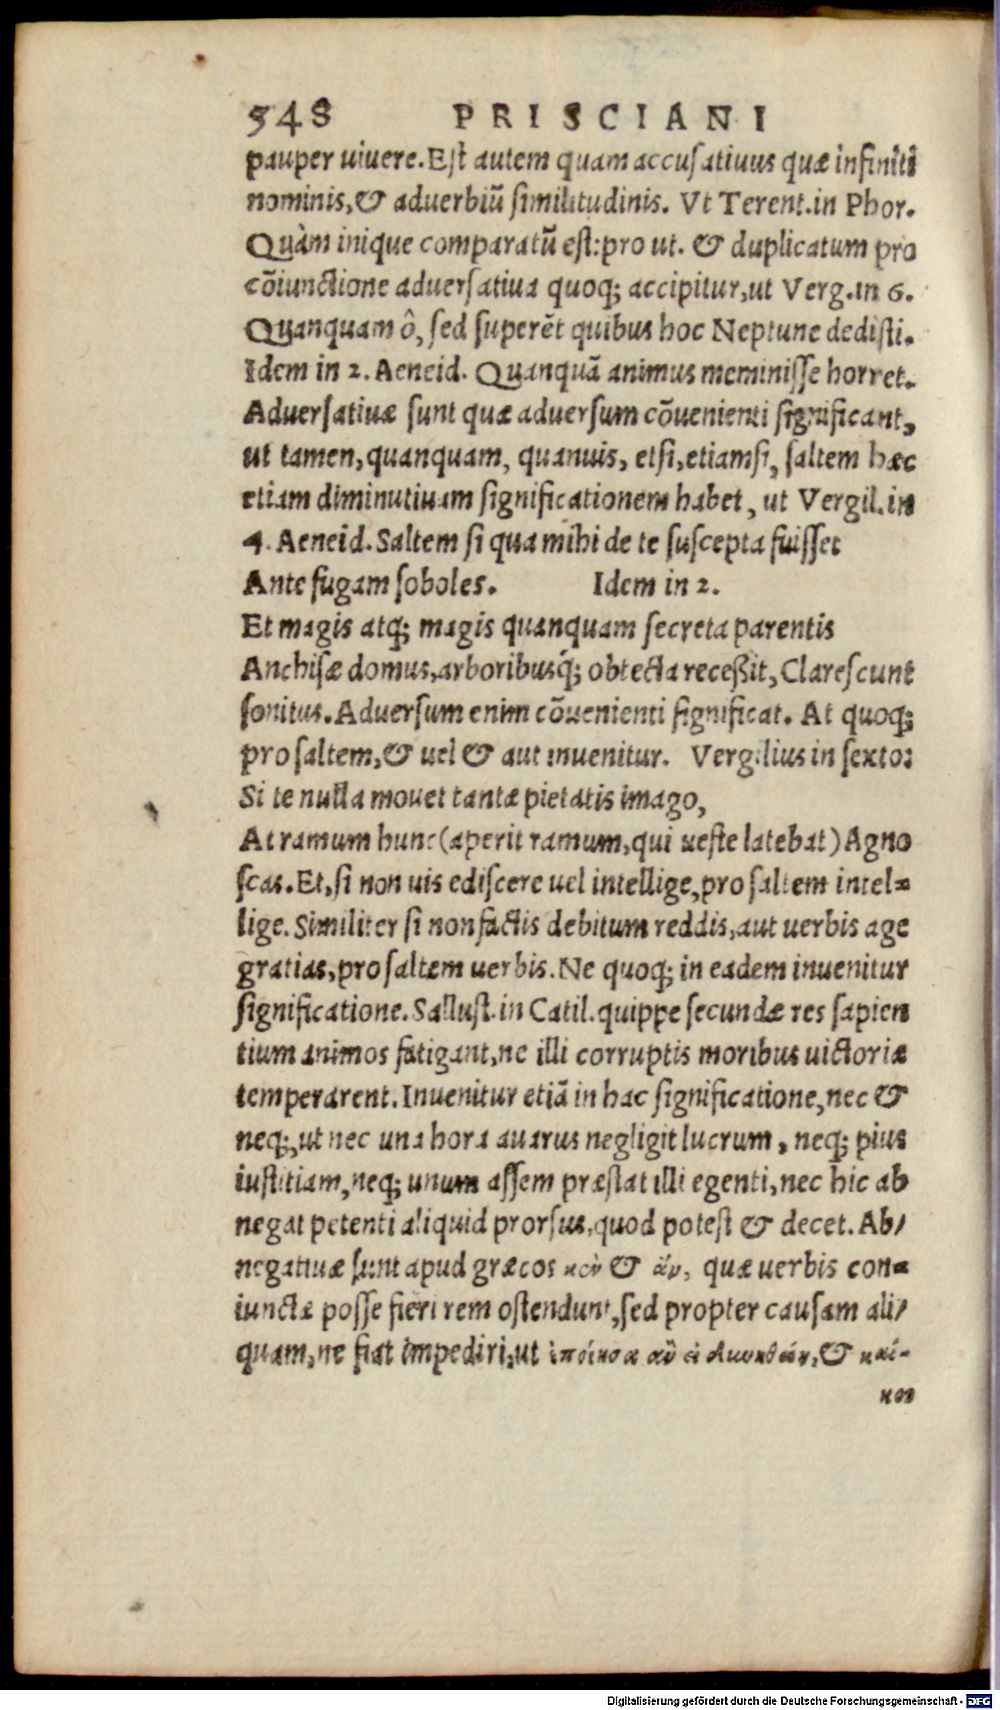 548 PRISCIANI
pauper uiuere. Est autem quam accusatiuus quæ infiniti
nominis, & aduerbiũ similitudinis. Vt Terent. in Phor.
Quàm inique comparatũ est: pro ut. & duplicatum pro
cõiunctione aduersatiua quoq; accipitur, ut Verg. in 6.
Quanquam ô, sed superẽt quibus hoc Neptune dedisti.
Idem in 2. Aeneid. Quanquã animus meminisse horret.
Aduersatiuæ sunt quæ aduersum cõuenienti significant,
ut tamen, quanquam, quanuis, etsi, etiamsi, saltem hæc
etiam diminutiuam significationem habet, ut Vergil. in
4. Aeneid. Saltem si qua mihi de te suscepta fuisset
Ante fugam soboles. Idem in 2.
Et magis atq; magis quanquam secreta parentis
Anchisæ domus, arboribusq́; obtecta receßit, Clarescunt
sonitus. Aduersum enim cõuenienti significat. At quoq;
pro saltem, & uel & aut inuenitur. Vergilius in sexto:
Si te nulla mouet tantæ pietatis imago,
At ramum hunc (aperit ramum, qui ueste latebat) Agno
scas. Et, si non uis ediscere uel intellige, pro saltem intel=
lige. Similiter si non factis debitum reddis, aut uerbis age
gratias, pro saltem uerbis. Ne quoq; in eadem inuenitur
significatione. Sallust. in Catil. quippe secundæ res sapien
tium animos fatigant, ne illi corruptis moribus uictoriæ
temperarent. Inuenitur etiã in hac significatione, nec &
neq;, ut nec una hora auarus negligit lucrum, neq; pius
iustitiam, neq; unum assem præstat illi egenti, nec hic ab
negat petenti aliquid prorsus, quod potest & decet. Ab/
negatiuæ sunt apud græcos κεὺ & ἂν, quæ uerbis con=
iunctæ posse fieri rem ostendunt, sed propter causam ali/
quam, ne fiat impediri, ut ἐποίησα ἂν εἰ &